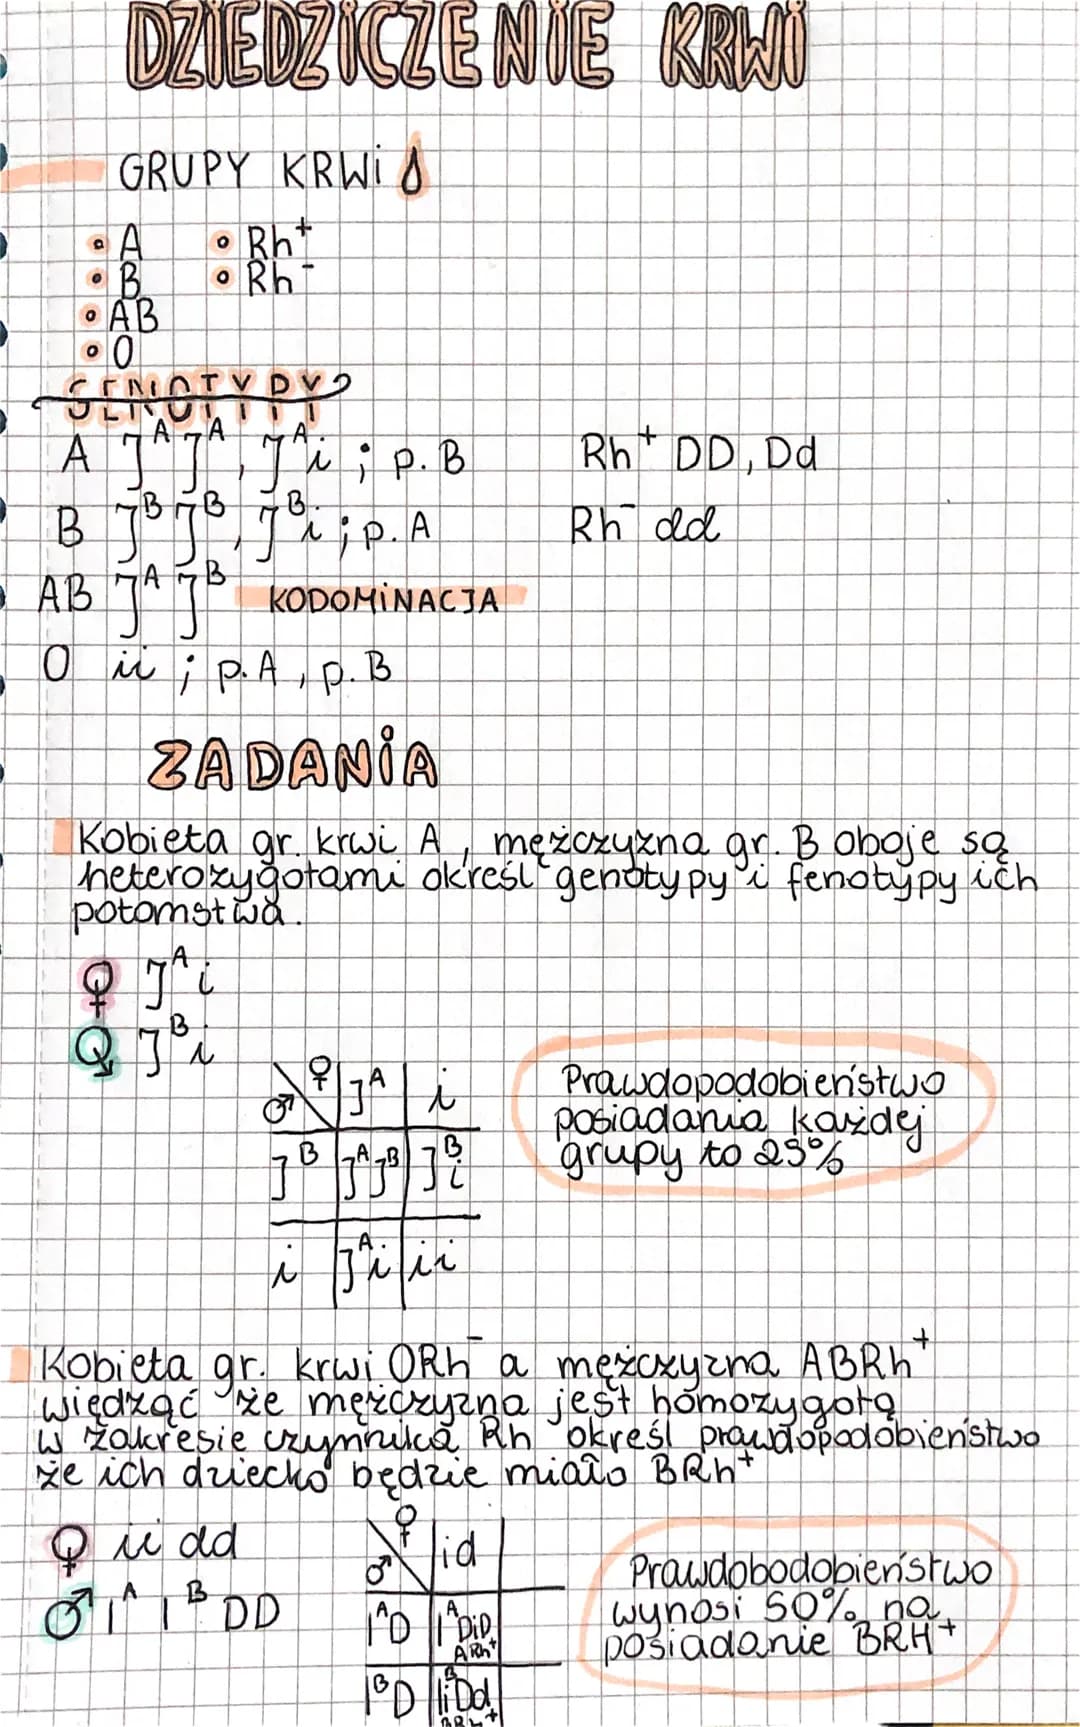 DZIEDZICZENIE KRWI
GRUPY KRWi
• A • Rh⁺
• B • Rh⁻
• AB
• O
GENOTYPY
A Iᴬ Iᴬ, Iᴬi ; p. B Rh⁺ DD, Dd
B Iᴮ Iᴮ, Iᴮi ; p. A Rh⁻ dd
AB Iᴬ Iᴮ KODOMiNACJA
O ii ; p. A, p. B
ZADANiA
Kobieta gr. krwi A, mężczyzna gr. B oboje są
heterozygotami określ genotypy i fenotypy ich
potomstwa.
♀ Iᴬi
♂ Iᴮi
♂ ♀ Iᴬ i
Iᴮ IᴬIᴮ Iᴮi
i Iᴬi ii
Prawdopodobieństwo
posiadania każdej
grupy to 25%
Kobieta gr. krwi ORh⁻ a mężczyzna ABRh⁺
wiedząć że mężczyzna jest homozygotą
w zakresie czynnika Rh określ prawdopodobieństwo
że ich dziecko będzie miało BRh⁺
♀ ii dd
♂ Iᴬ Iᴮ DD
♂ ♀ id
IᴬD IᴬDiD
ARh⁺
IᴮD IᴮiDd
BRh⁺
Prawdobodobieństwo
wynosi 50% na
posiadanie BRH⁺